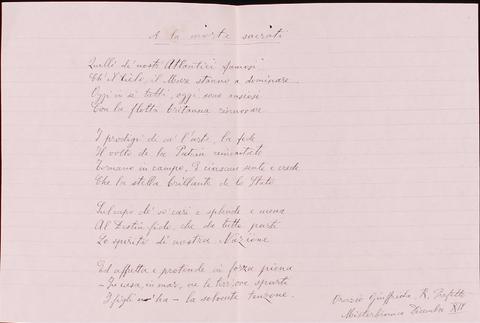 A la morte sacrati
Quelli de' nostri Atlantici famosi
Ch'il Cielo, il Mare stanno a dominare
Oggi in sè tutti, oggi sono ansiosi
Con la flotta britanna rinnovare
I prodigi de l'arte, la fede
Il volto de la Patria
Tornano in campo, E ciascun sente e crede
Che la stella brillante de lo Stato
Sul capo de' sì cari e splende e mena
Al Destin fiolo, che da tutte parti
Lo spirito di nostra Nazione
Ed affretta e protende in forza piena
In casa, in mar, ne le terr'ove sparte
I figli la solvente tenzone.
Orazio Giuffrida, R. Prefetto
Misterbianco Dicembre XIV